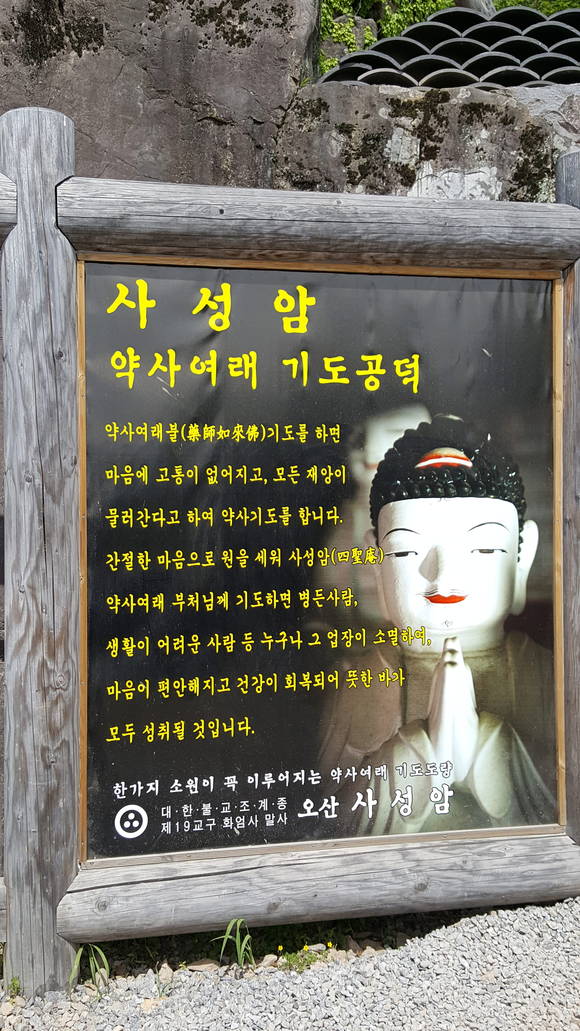 사 성 암
약사여래 기도공덕
약사여래불(藥師如來佛)기도를 하면
마음에 고통이 없어지고, 모든 재앙이
물러간다고 하여 약사기도를 합니다.
간절한 마음으로 원을 세워 사성암(四聖庵)
약사여래 부처님께 기도하면 병든사람,
생활이 어려운 사람 등 누구나 그 업장이 소멸하여,
마음이 편안해지고 건강이 회복되어 뜻한 바가
모두 성취될 것입니다.
한가지 소원이 꼭 이루어지는 약사여래 기도도량
대·한·불·교·조·계·종
제19교구 화엄사 말사
오산 사 성 암